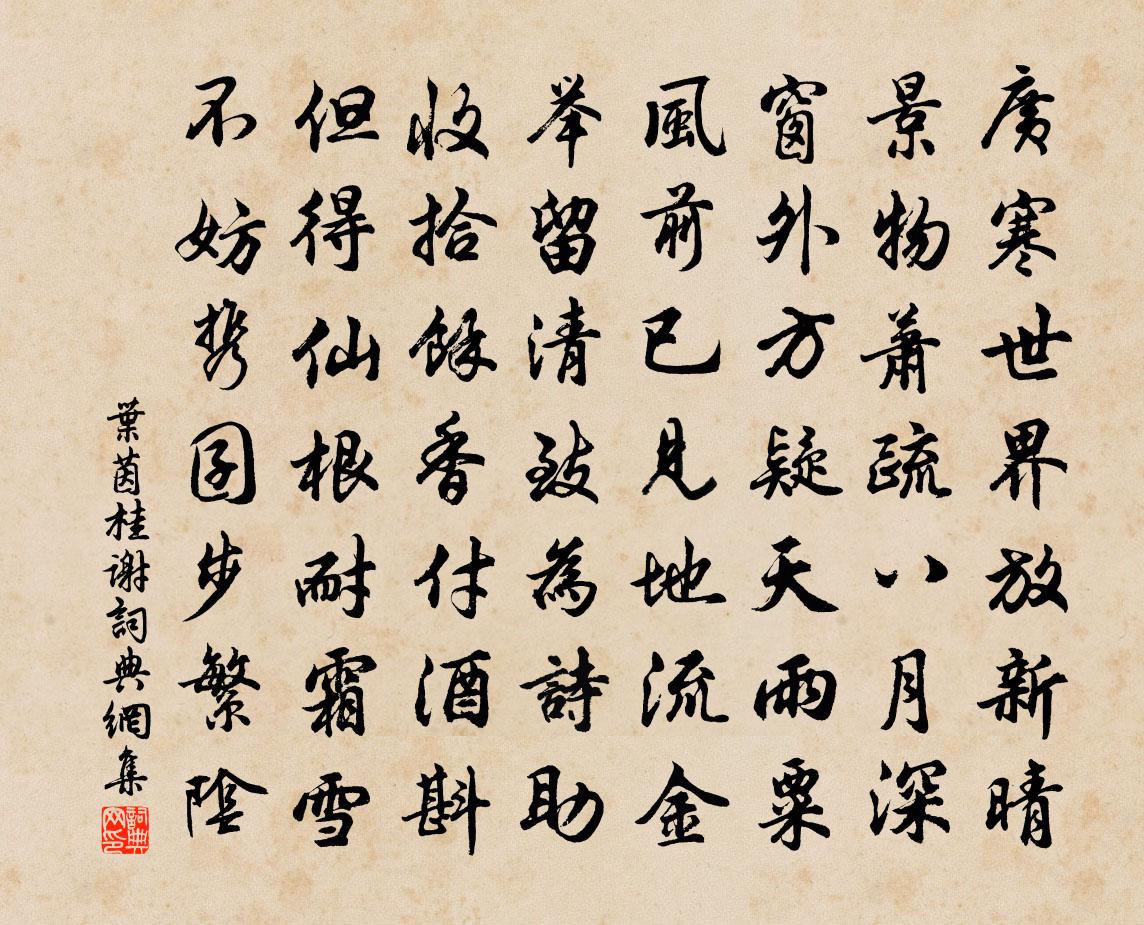 廣寒世界放新晴
景物蕭疏八月深
窗外方疑天雨粟
風前已見地流金
举留清致為詩助
收拾餘香付酒斟
但得仙根耐霜雪
不妨携囝步繁陰
葉茵桂謝詞典網集
詞典网印